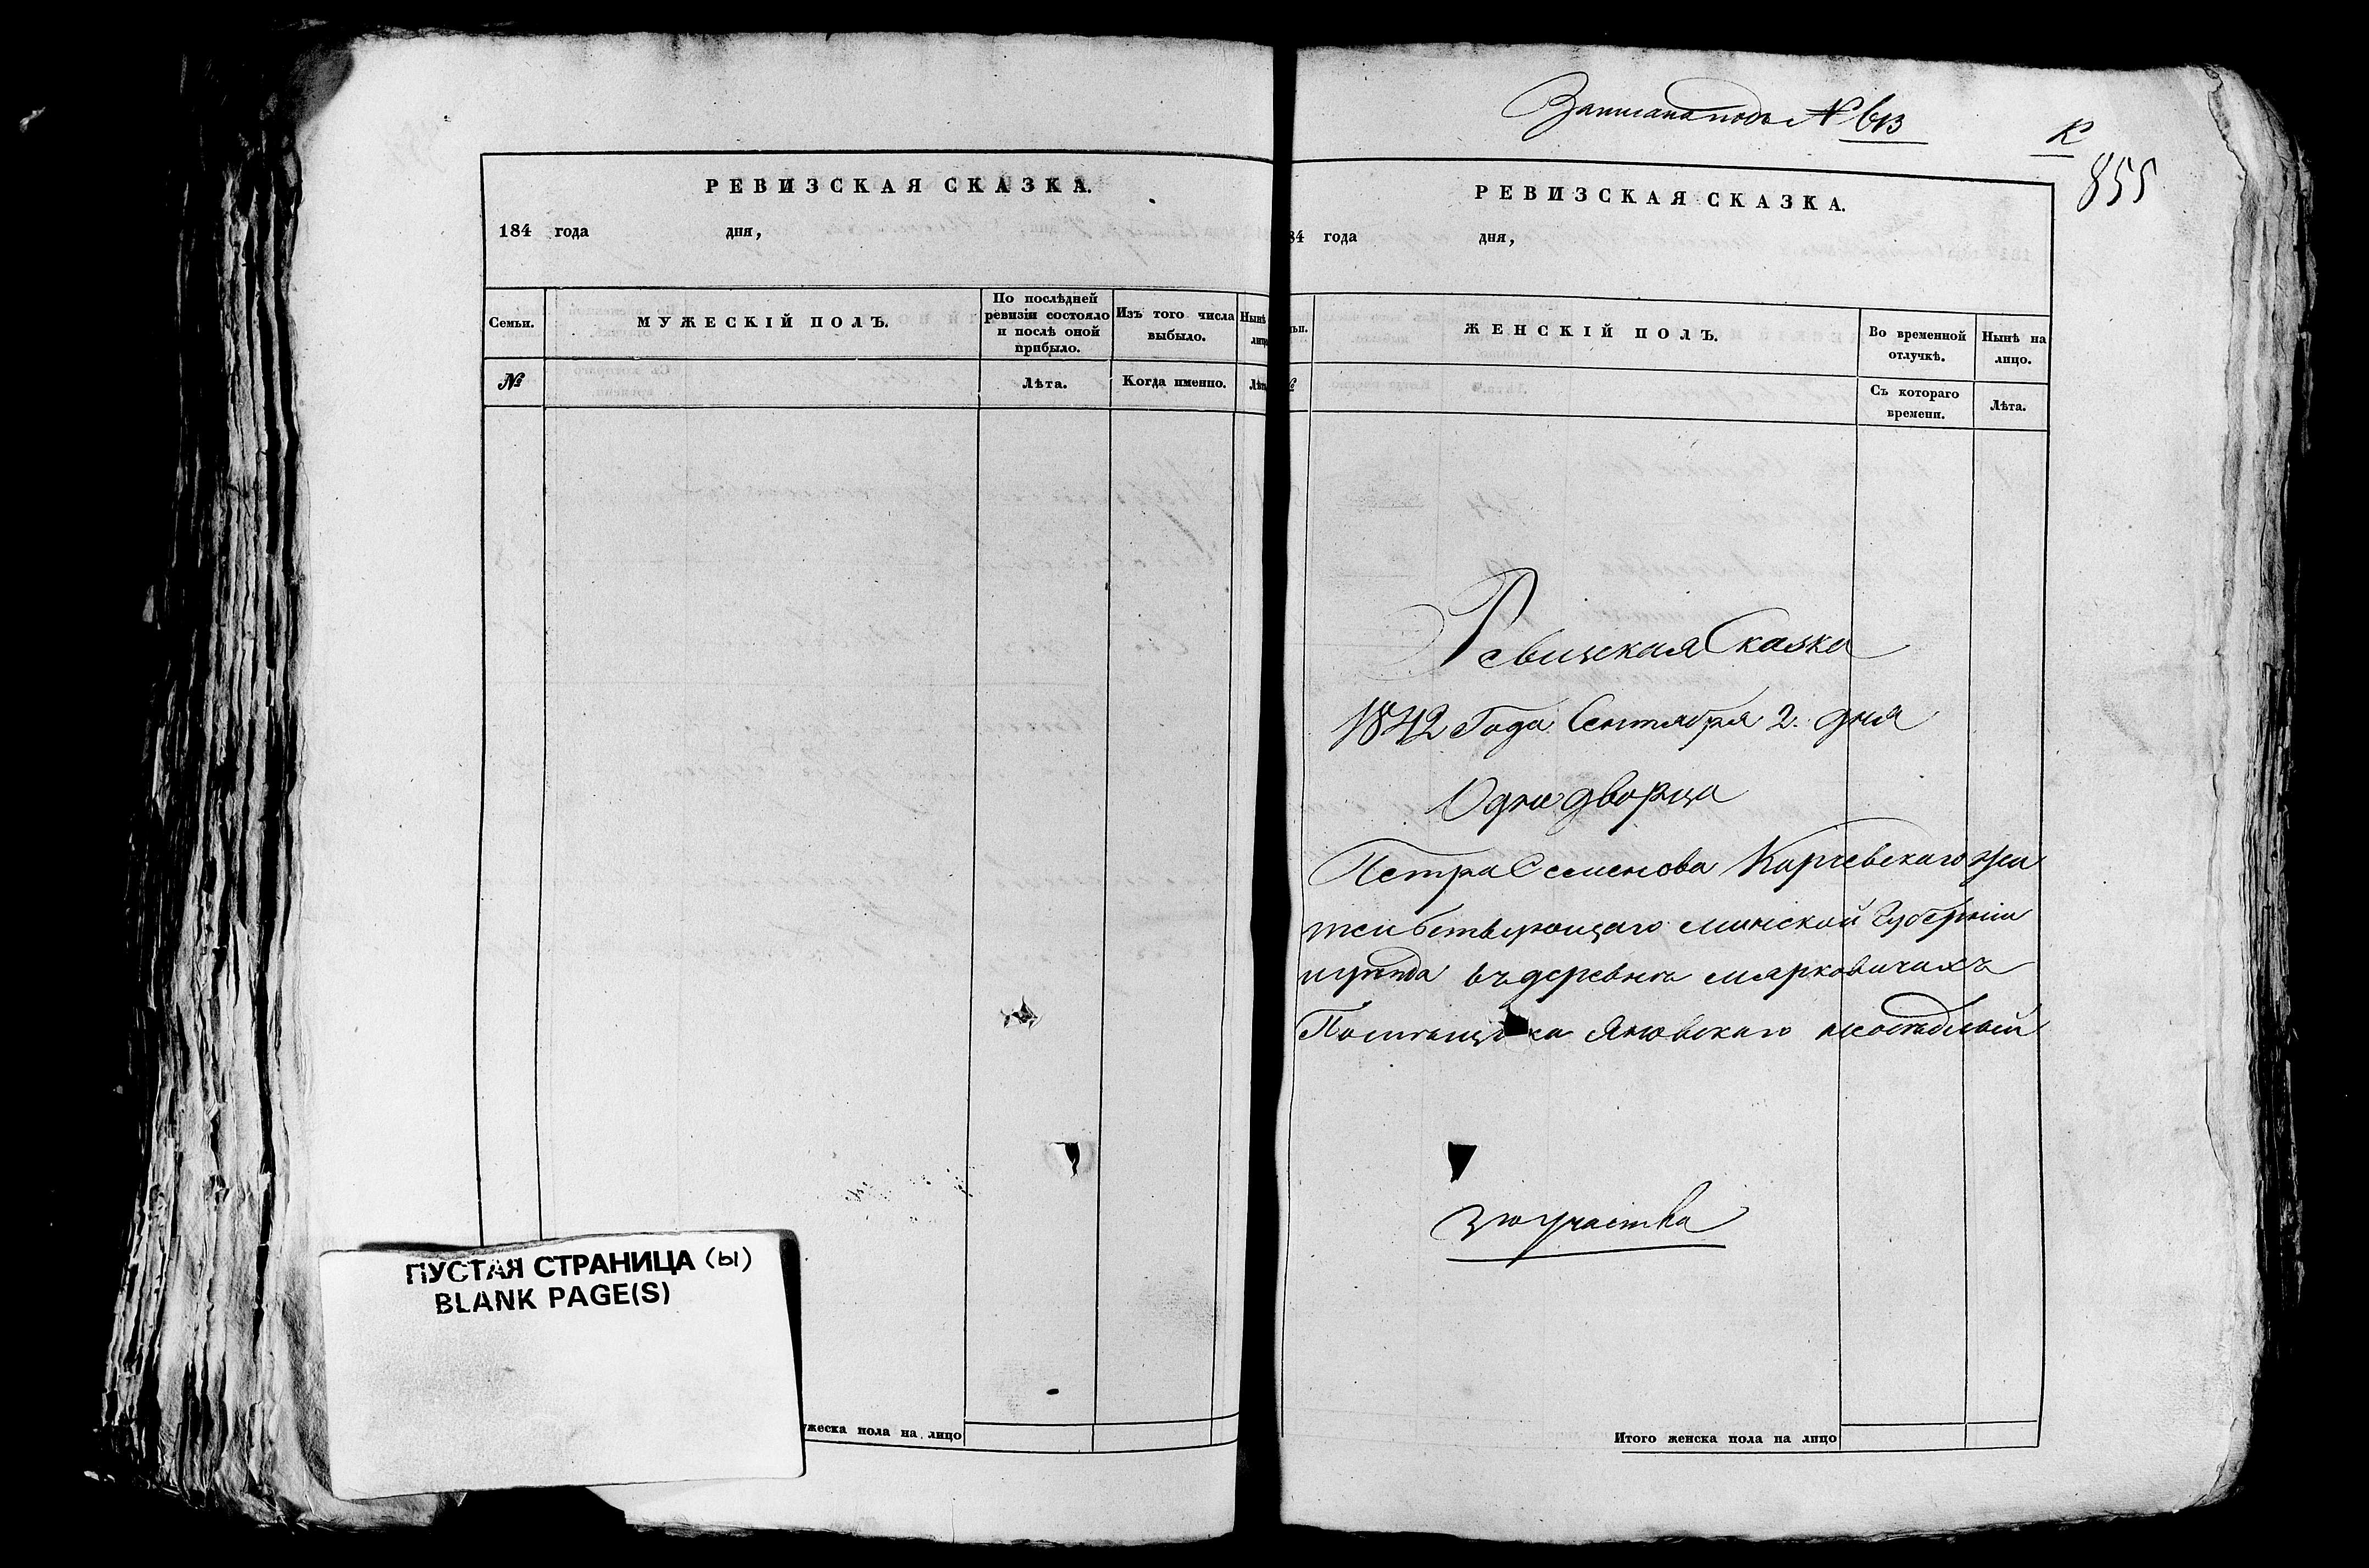 РЕВИЗСКАЯ СКАЗКА.
184 года дня,
Семьи.
МУЖЕСКІЙ ПОЛЪ.
По послѣдней
ревизіи состояло
и послѣ оной
прибыло.
Изъ того числа
выбыло.
Нынѣ
лицо
№
Лѣта.
Когда именно.
Лѣта
ПУСТАЯ СТРАНИЦА (Ы)
BLANK PAGE(S)
ужеска пола на лицо
Записана подъ № 613
К
855
РЕВИЗСКАЯ СКАЗКА.
84 года дня,
ьи.
ЖЕНСКІЙ ПОЛЪ.
Во временной
отлучкѣ.
Нынѣ на
лицо.
№
Съ котораго
времени.
Лѣта.
Ревизская Сказка
1842 Года Сентября 2. дня
Однодворца
Петра Семенова Карчевскаго жи
тельствующаго минской Губерніи
и уѣзда въ деревнѣ Марковичахъ
Помѣщика Яновскаго неосѣдлый
3го участка
Итого женска пола на лицо